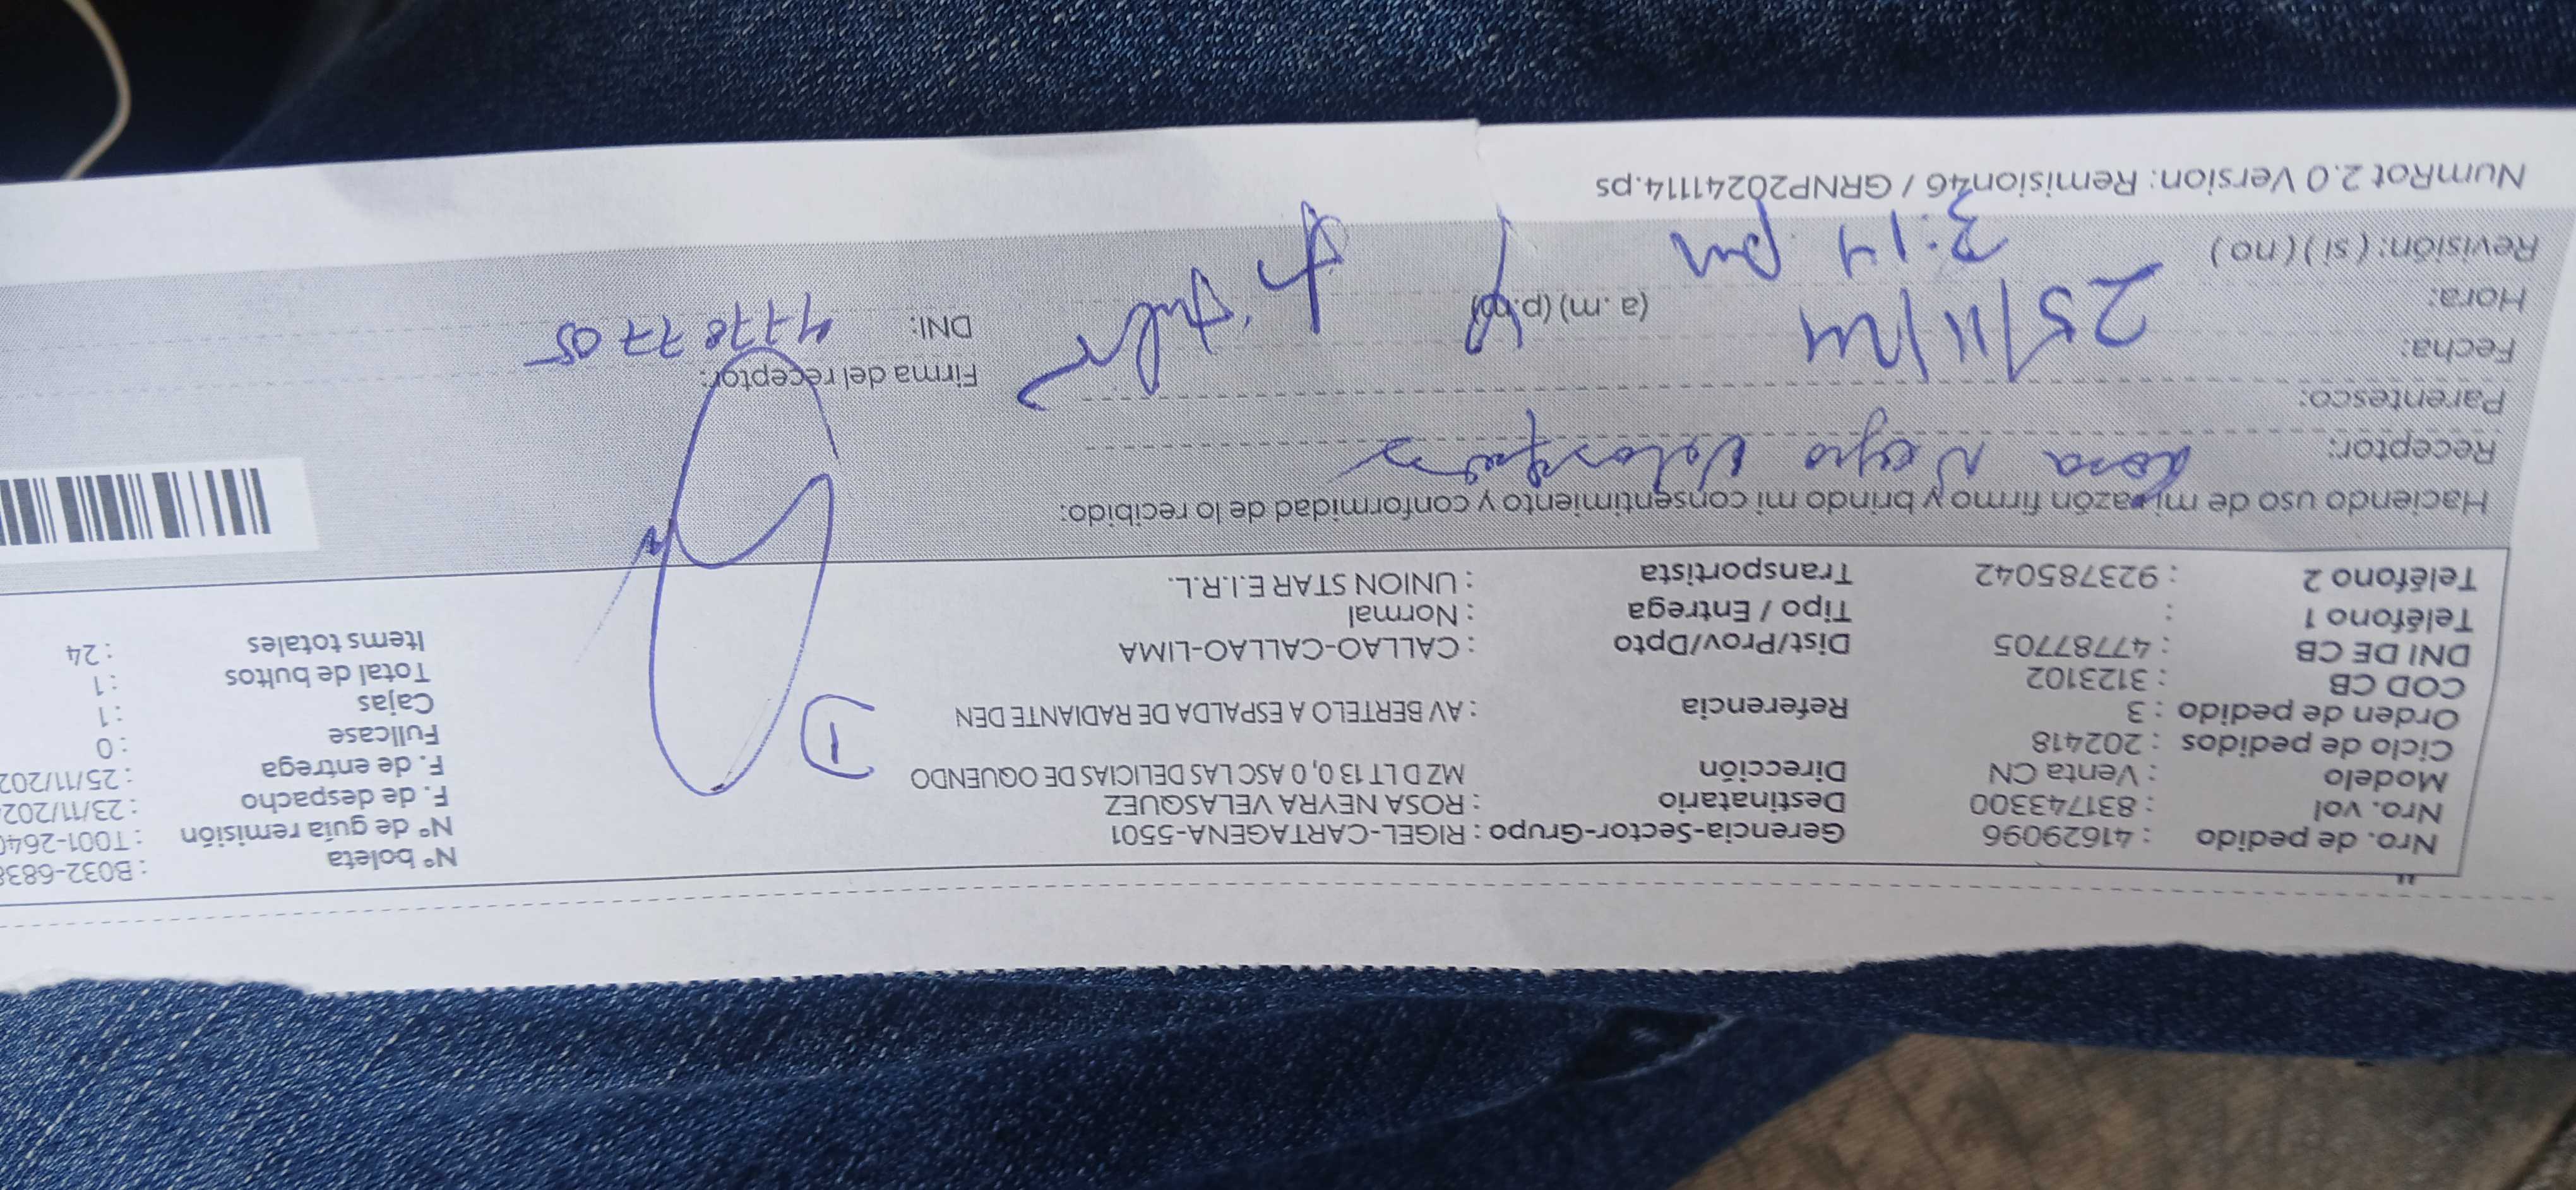 Nro. de pedido : 41629096 Gerencia-Sector-Grupo : RIGEL-CARTAGENA-5501 N° boleta : B032-6838
Nro. vol : 831743300 Destinatario : ROSA NEYRA VELASQUEZ N° de guía remisión : T001-2640
Modelo : Venta CN Dirección MZ D LT 13 0, 0 ASC LAS DELICIAS DE OQUENDO F. de despacho : 23/11/202
Ciclo de pedidos : 202418 F. de entrega : 25/11/202
Orden de pedido : 3 Referencia : AV BERTELO A ESPALDA DE RADIANTE DEN Fullcase : 0
COD CB : 3123102 Cajas : 1
DNI DE CB : 47787705 Dist/Prov/Dpto : CALLAO-CALLAO-LIMA Total de bultos : 1
Teléfono 1 : Tipo / Entrega : Normal Items totales : 24
Teléfono 2 : 923785042 Transportista : UNION STAR E.I.R.L.
1
Haciendo uso de mi razón firmo y brindo mi consentimiento y conformidad de lo recibido:
Receptor: Rosa Neyra Velasquez
Parentesco: Titular
Firma del receptor:
Fecha: 25/11/24
DNI: 47787705
Hora: 3:14 pm (a.m) (p.m)
Revisión: (si) (no)
NumRot 2.0 Version: Remision46 / GRNP20241114.ps